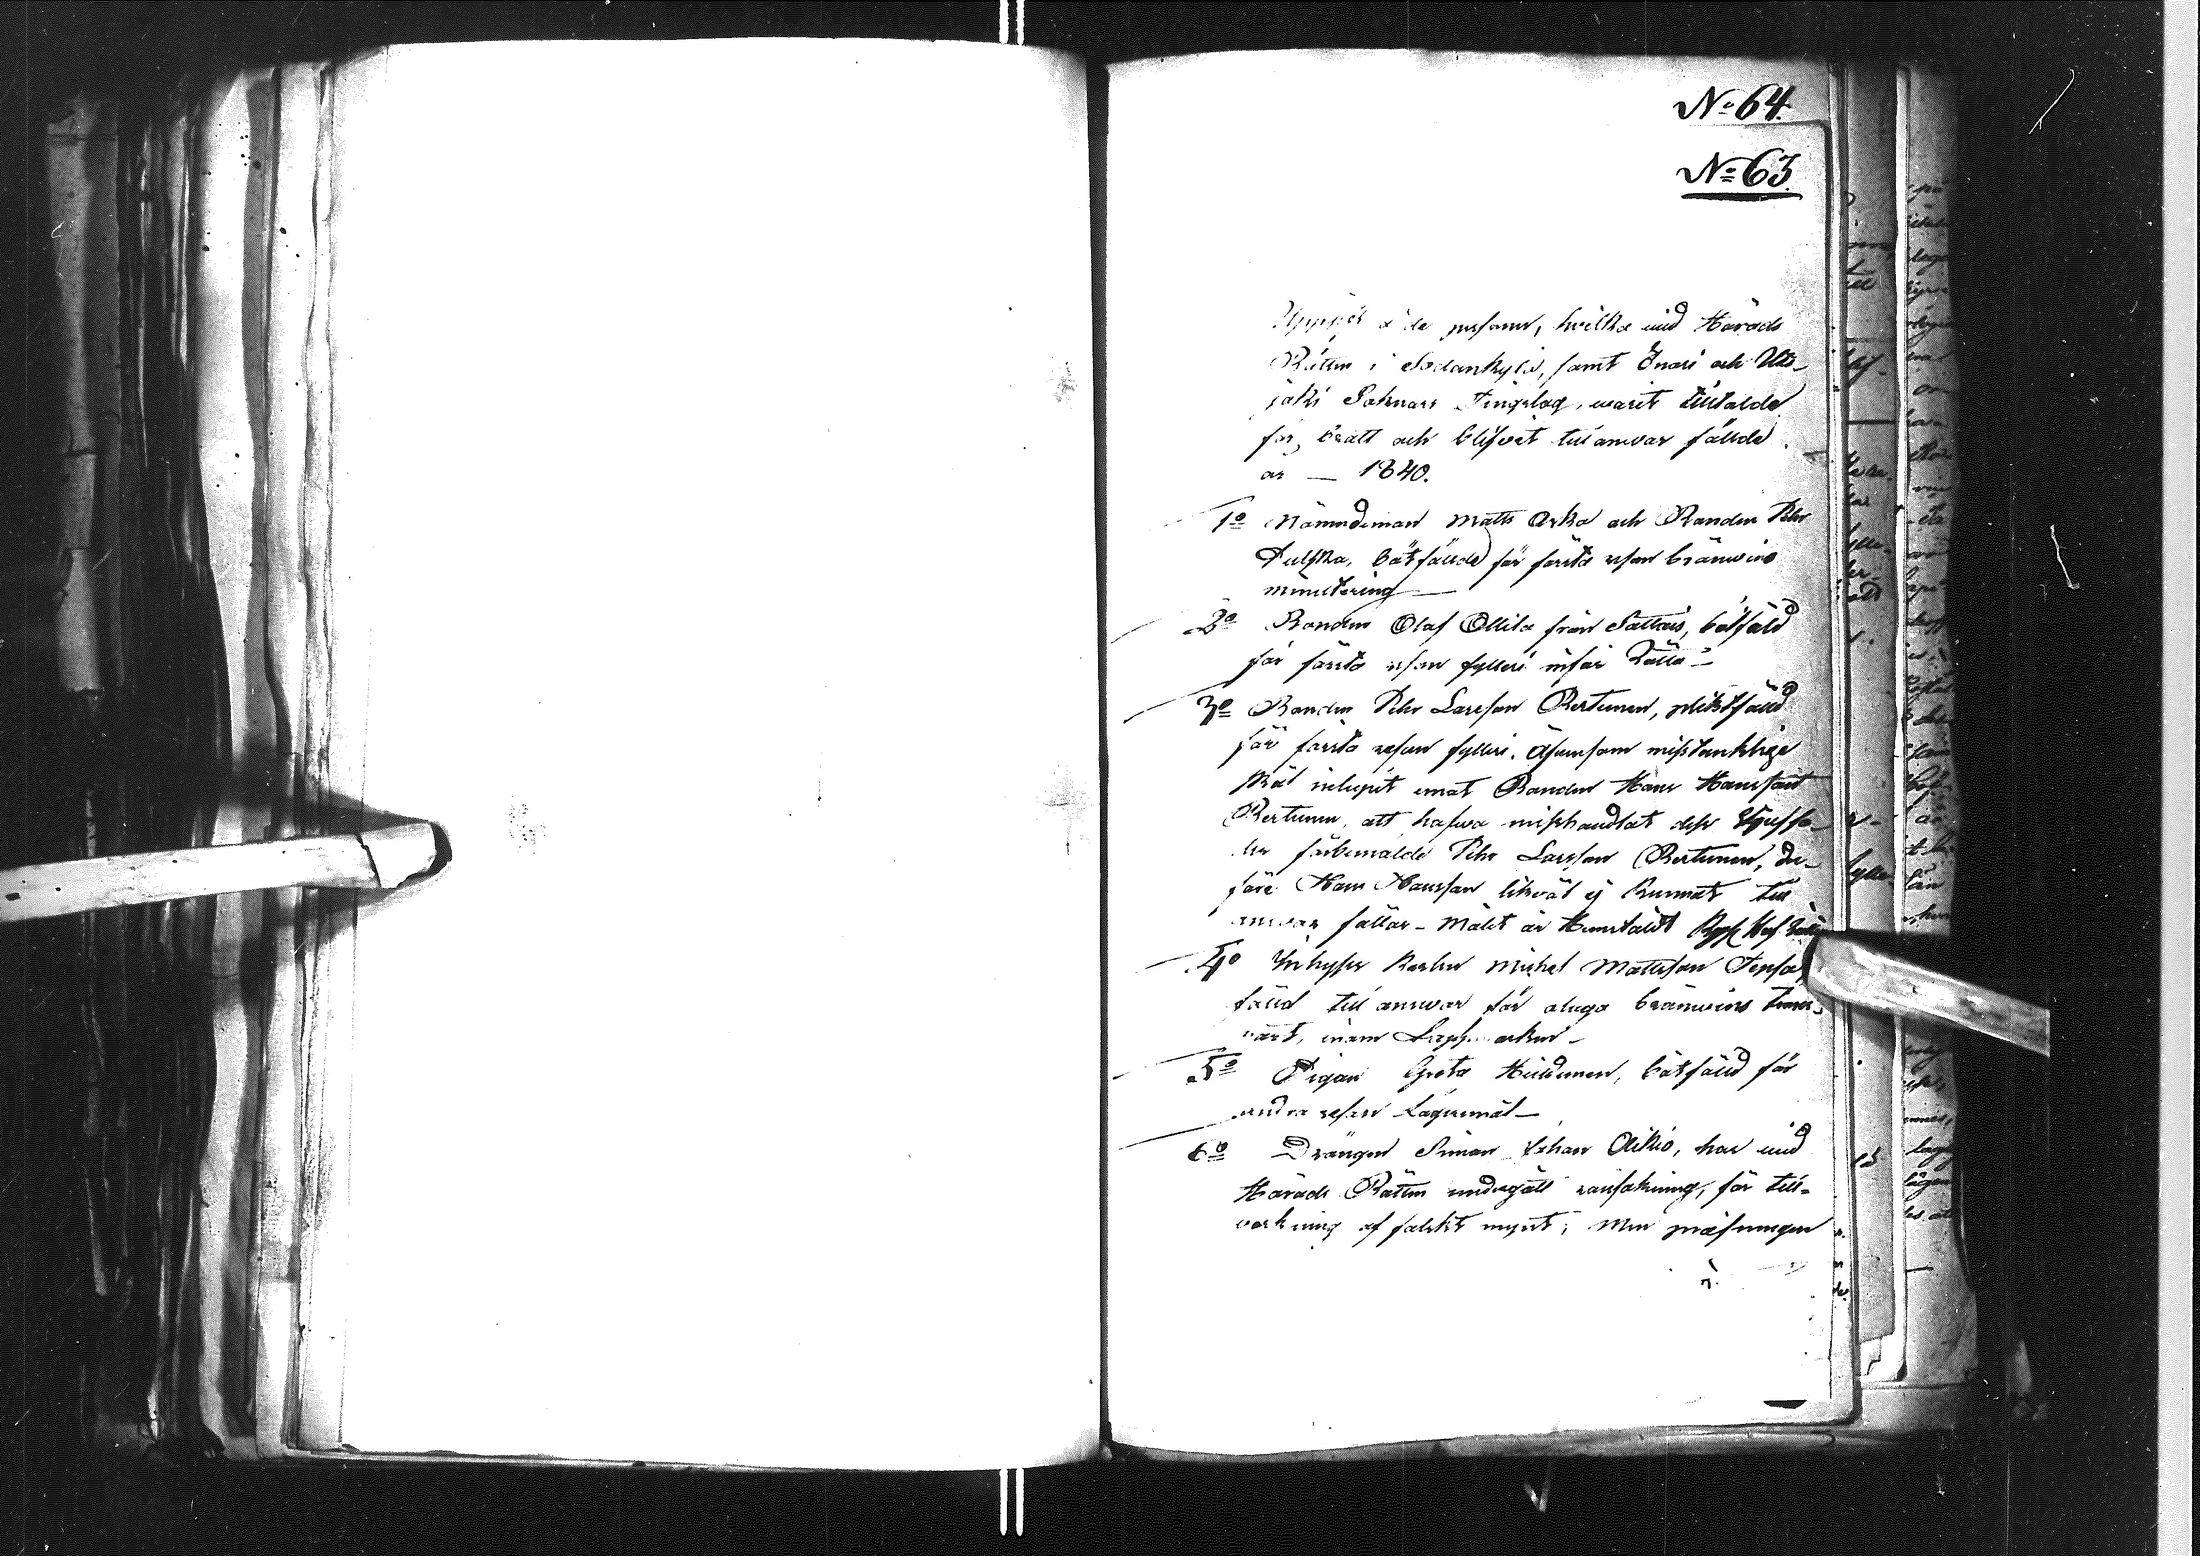 No 64.
No 63.
Uppgift å de personer, hvilka vid Härads
Rätten i Sodankylä, samt Enari och Uts-
joki Soknars Tingslag, varit tilltalde
för brott och blifvit till answar fällde
år — 1840.
1o Nämndeman Matts Arka och Bonden Pehr
Pulska, bötfällde för första resan bränwins
minutering —
2o Bonden Olaf Ollila från Sattais, bötfäld
för första resan fylleri inför Rätta —
3o Bonden Pehr Larsson Kertunen, pliktfälld
för första resan fylleri. Äfvensom misstänklige
skäl inlupit emot Bonden Hans Hansson
Kertunen, att hafwa misshandlat dess
förbemälde Pehr Larsson Kertunen, der-
före Hans Hansson likväl ej kunnat till
answar fällas – Målet är Hemstäldt
4o Inhyses Karlen Michel Mattsson
fälld till answar för olaga bränwins
inom Lappmarken –
5o Pigan Greta Hiltunen, bötfälld för
andra resan Lägersmål —
6o Drängen Simon Johan Aikio, har vid
Härads Rätten undergått ransakning, för till-
verkning af falskt mynt; Men pröfningen